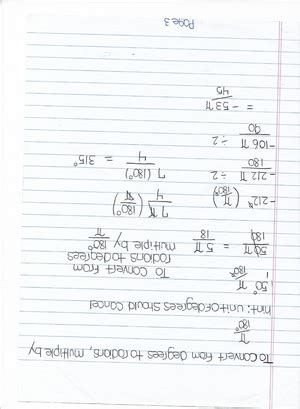 To convert from degrees to radians, multiple by
π/180°
hint: unit of degrees should cancel
50° π/180°
To convert from
radians to degrees
multiple by 180°/π
50π/180 = 5π/18
-212° (π/180°)
7π/4 (180°/π)
-212π/180 ÷ 2
7(180°)/4 = 315°
-106π/90 ÷ 2
= -53π/45
Page 3